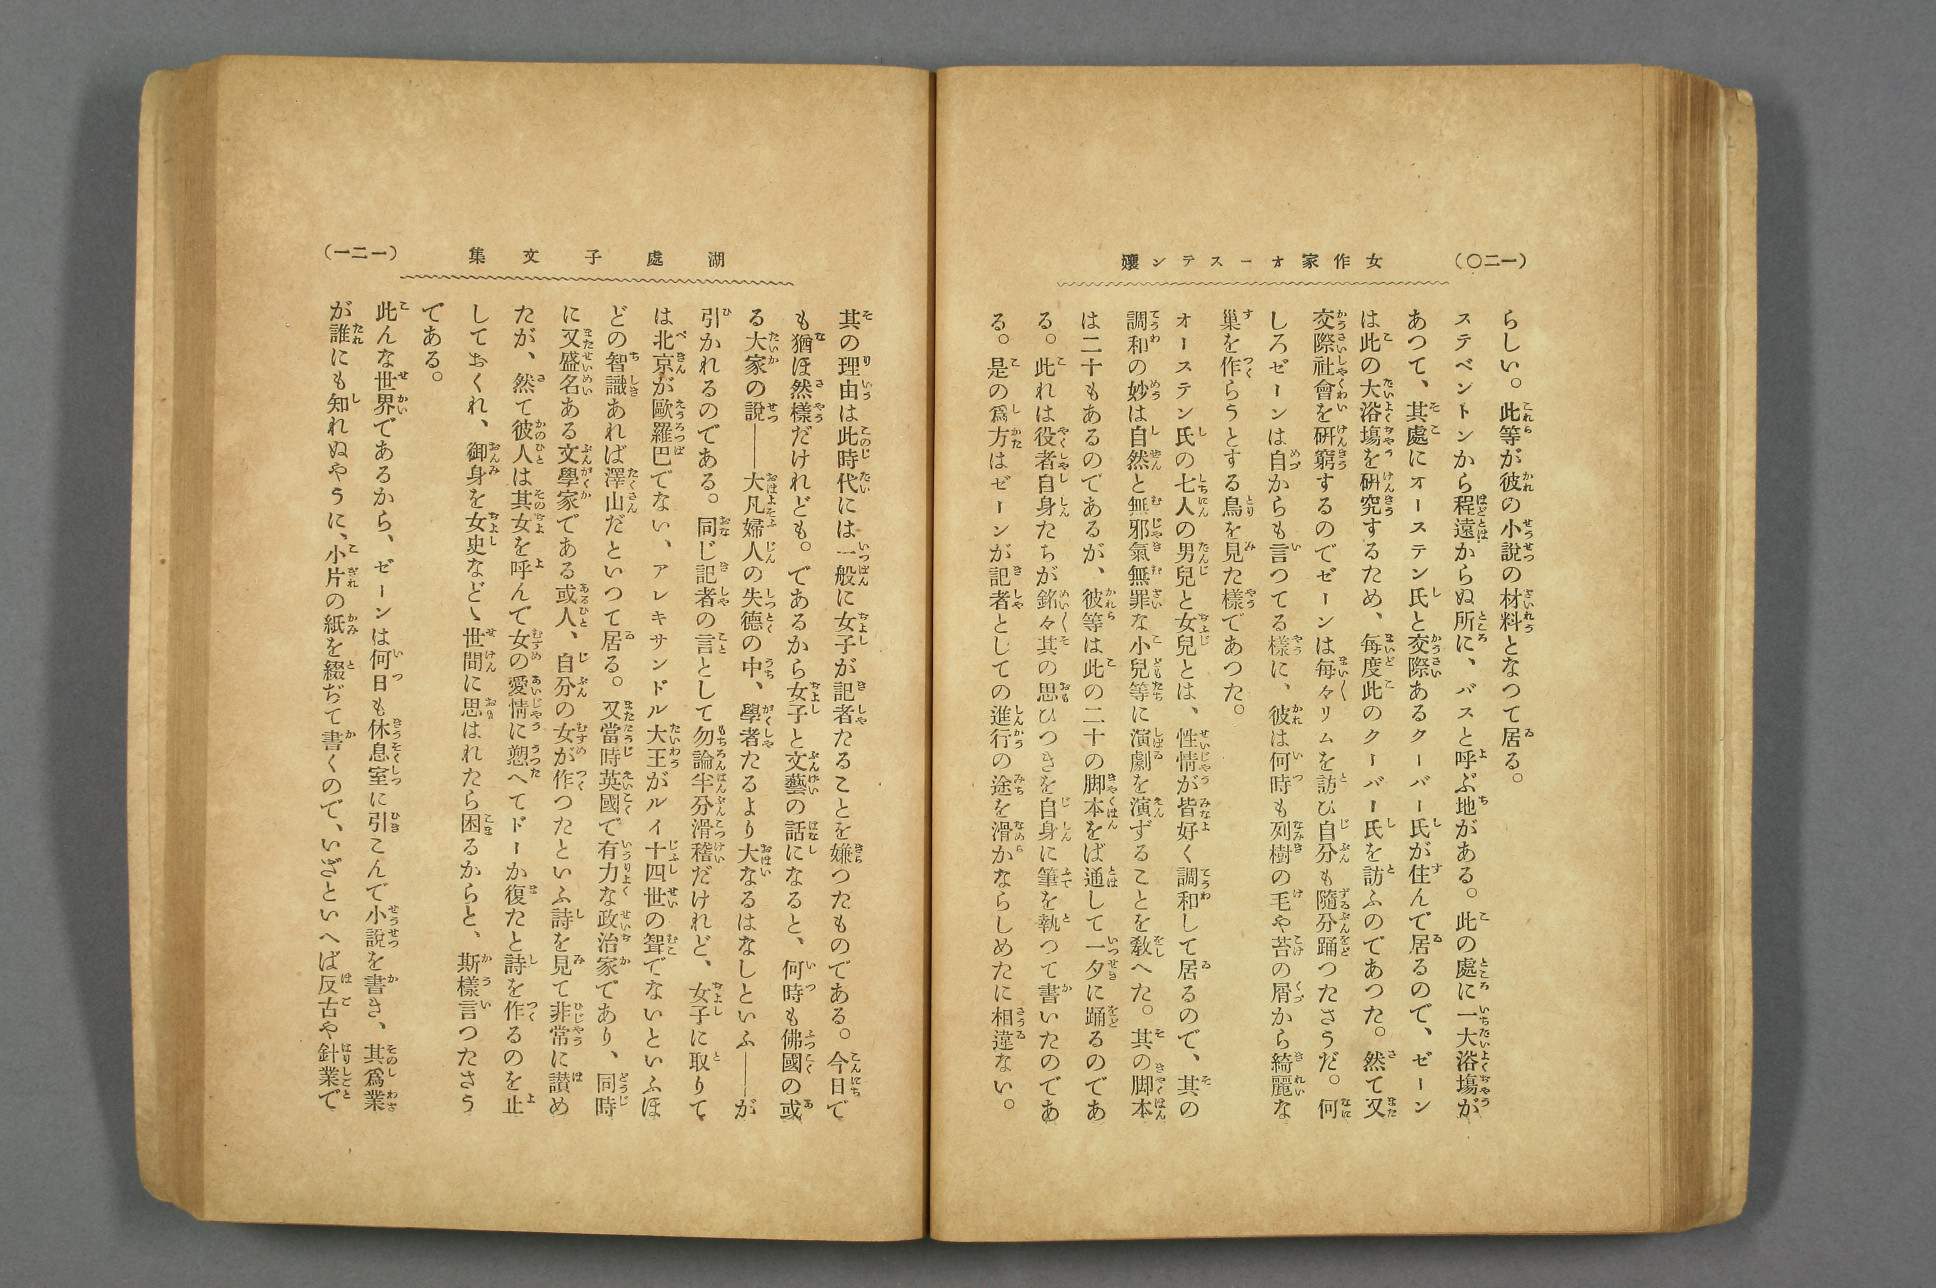 （一二〇）
女作家オーステン孃
らしい。此等が彼の小說の材料となつて居る。
ステベントンから程遠からぬ所に、バスと呼ぶ地がある。此の處に一大浴塲が
あつて、其處にオーステン氏と交際あるクーバー氏が住んで居るので、ゼーン
は此の大浴塲を硏究するため、每度此のクーバー氏を訪ふのてあつた。然て又
交際社會を硏窮するのでゼーンは每々リムを訪ひ自分も隨分踊つたさうだ。何
しろゼーンは自からも言つてる樣に、彼は何時も列樹の毛や苔の屑から綺麗な
巢を作らうとする鳥を見た樣であつた。
オーステン氏の七人の男兒と女兒とは、性情が皆好く調和して居るので、其の
調和の妙は自然と無邪氣無罪な小兒等に演劇を演ずることを敎へた。其の脚本
は二十もあるのであるが、彼等は此の二十の脚本をば通して一夕に踊るのであ
る。此れは役者自身たちが銘々其の思ひつきを自身に筆を執つて書いたのであ
る。是の爲方はゼーンが記者としての進行の途を滑かならしめたに相違ない。
湖處子文集
（一二一）
其の理由は此時代には一般に女子が記者たることを嫌つたものである。今日で
も猶ほ然樣だけれども。であるから女子と文藝の話になると、何時も佛國の或
る大家の說――大凡婦人の失德の中、學者たるより大なるはなしといふ――が
引かれるのである。同じ記者の言として勿論半分滑稽だけれど、女子に取りて
は北京が歐羅巴でない、アレキサンドル大王がルイ十四世の聟でないといふほ
どの智識あれば澤山だといつて居る。又當時英國で有力な政治家であり、同時
に又盛名ある文學家である或人、自分の女が作つたといふ詩を見て非常に讃め
たが、然て彼人は其女を呼んで女の愛情に愬へてドーか復たと詩を作るのを止
しておくれ、御身を女史などゝ世間に思はれたら困るからと、斯樣言つたさう
である。
此んな世界であるから、ゼーンは何日も休息室に引こんで小說を書き、其爲業
が誰にも知れぬやうに、小片の紙を綴ぢて書くので、いざといへば反古や針業で